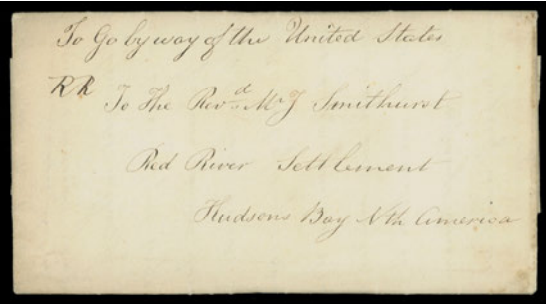 To Go by way of the United States
RR
To The Revd Mr J Smithurst
Red River Settlement
Hudsons Bay Nth America